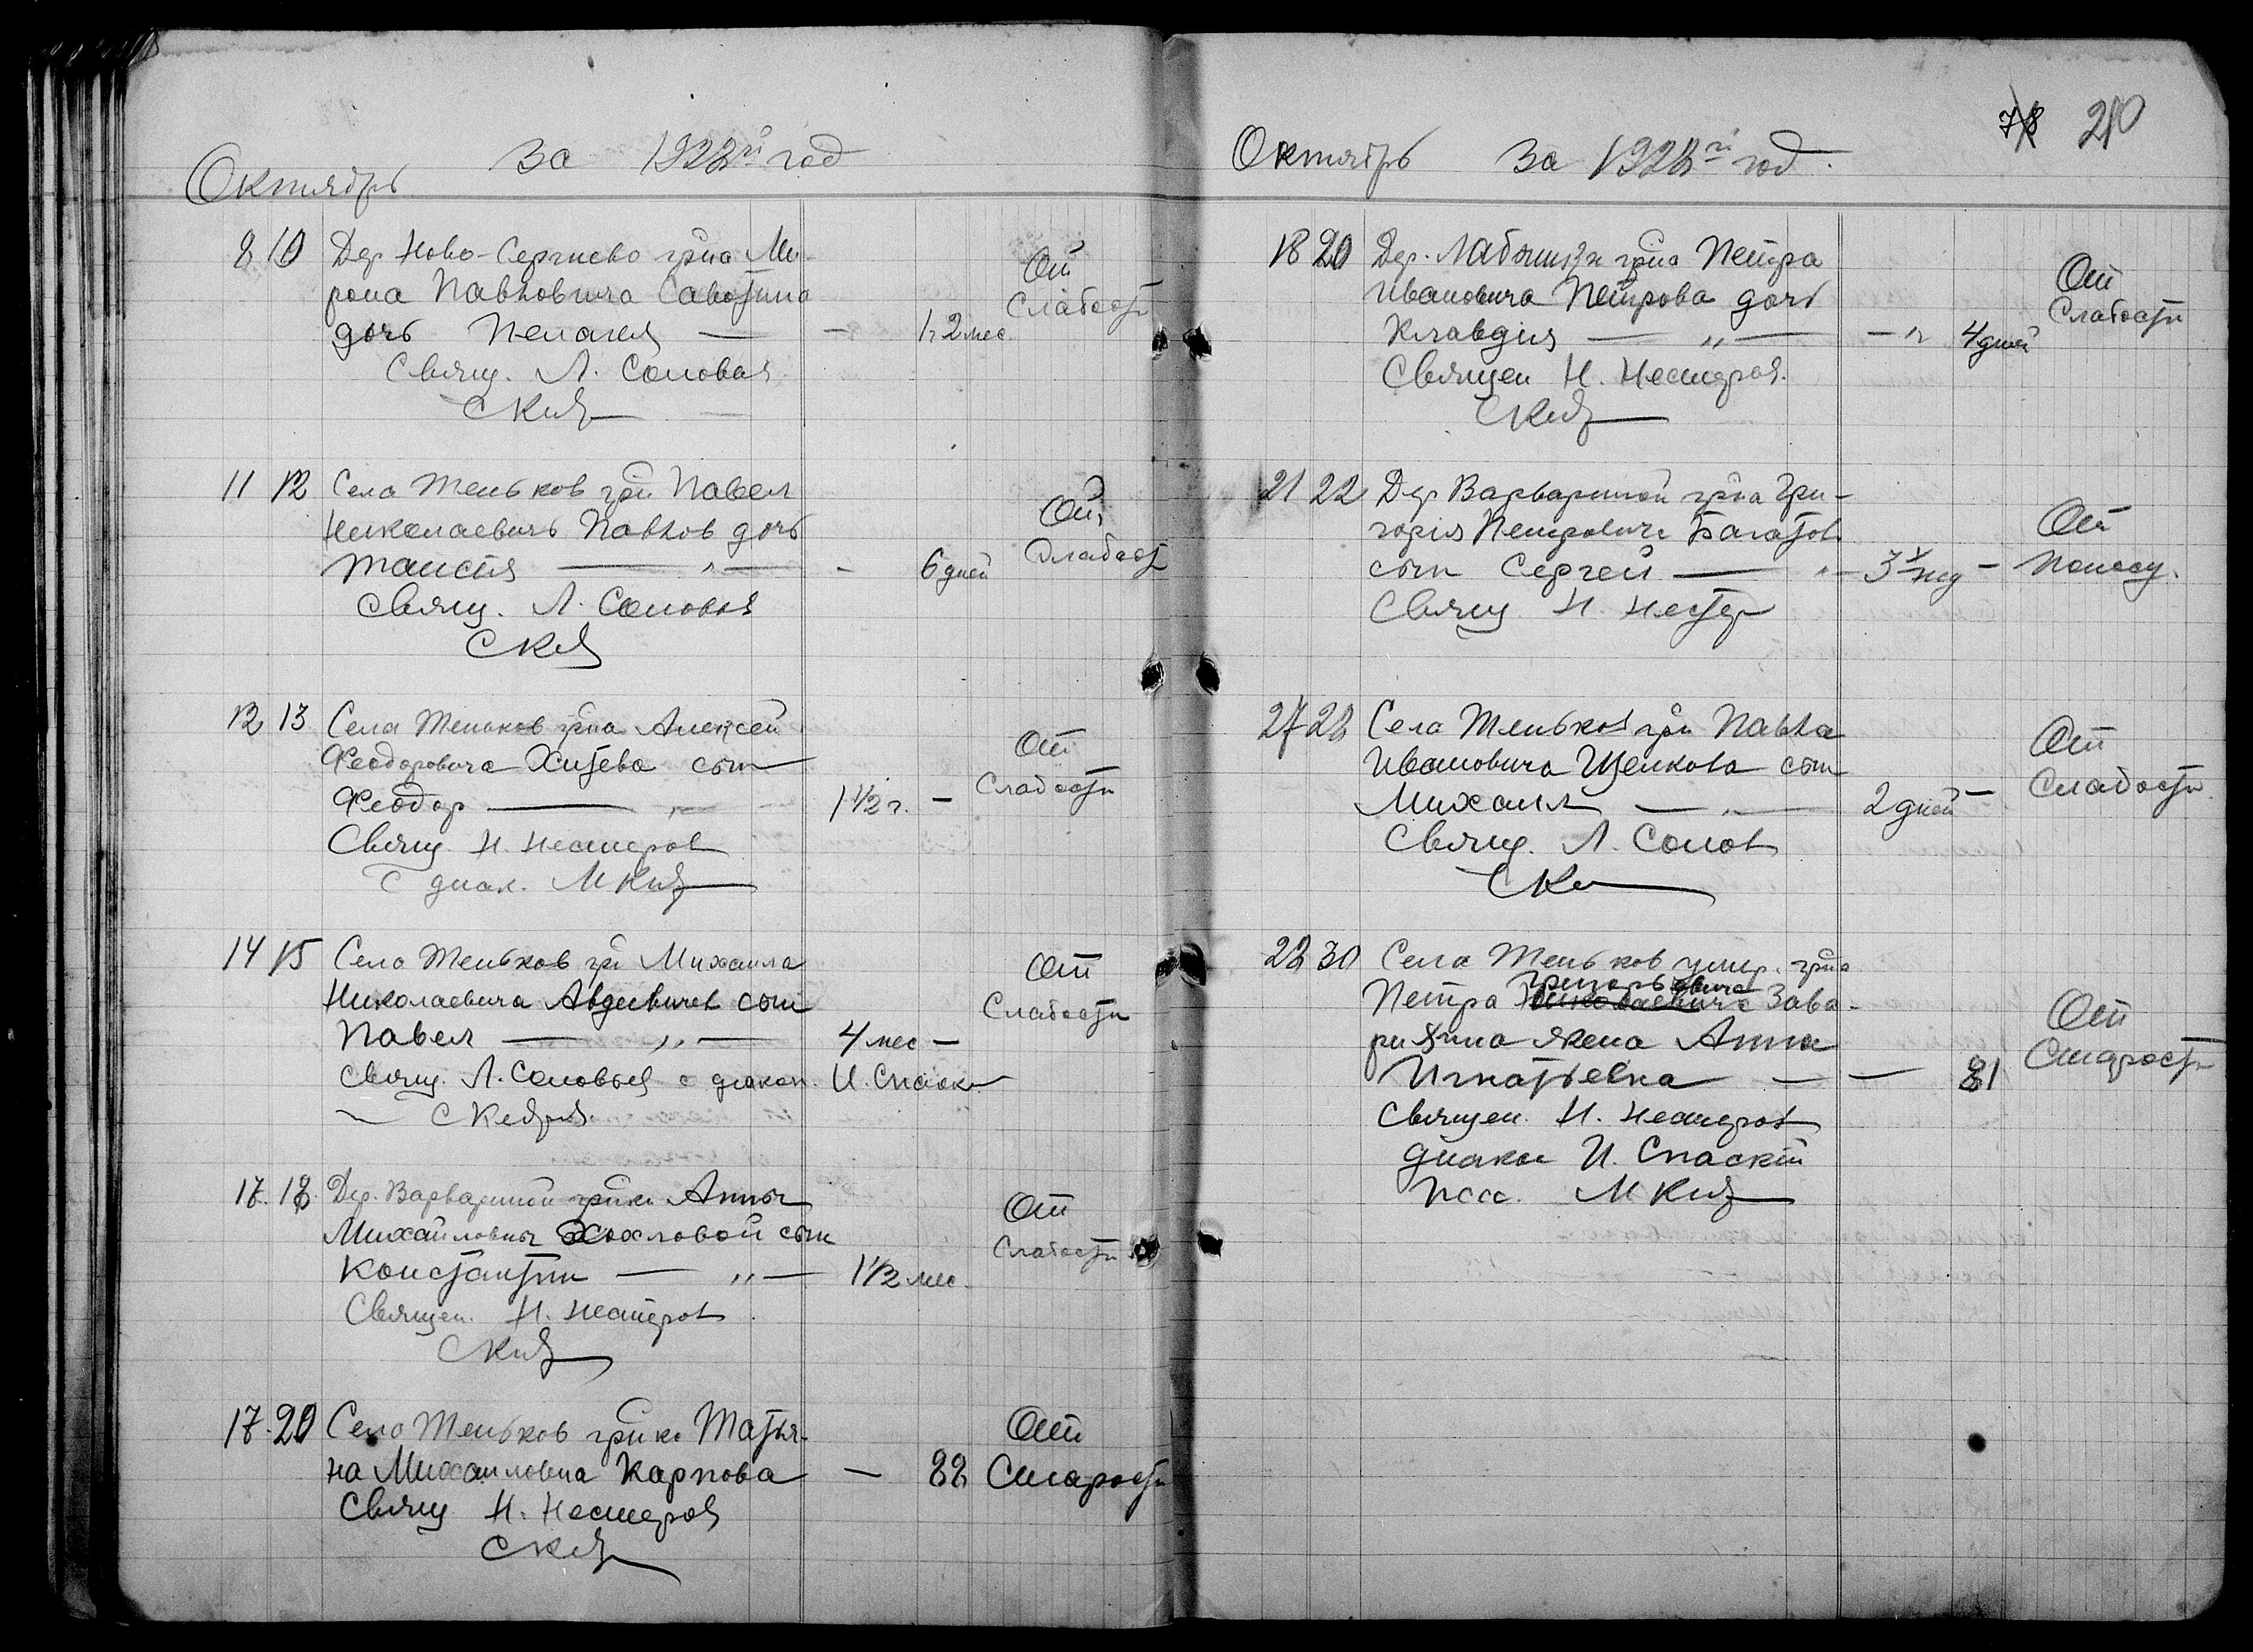 Октябрь за 1928й год
8 10 Дер Ново-Сергиево гр-на Ми-
рона Павловича Савотина
дочь Пелагея — — 1 г 2 мес.
От
Слабости
Свящ. Л. Соловьев
11 12 Села Теньков гр. Павел
Николаевичъ Павлов дочь
Таисия — " — - 6 дней
От
Слабости
Свящ. Л. Соловьев
12 13 Села Теньков гр-на Алексей
Феодоровича Хитева сын
Феодор — " — 1 1/2 г. —
От
Слабости
Свящ. Н. Нестеров
С диак. М
14 15 Село Теньков гр Михаила
Николаевича сын
Павел — " — 4 мес —
От
Слабости
Свящ. Л. Соловьев с диакон. И. Спасск
17. 18. Дер. Варвариной гр-ки Анны
Михайловны Хохловой сын
Константин — " — 1 1/2 мес.
От
Слабости
Священ. Н. Нестеров
17. 20 Село Теньков гр-ка Татья-
на Михаиловна Карпова — 88
От
Старости
Свящ Н. Нестеров
78 210
Октябрь за 1928й год.
18 20 Дер. гр-на Петра
Ивановича Петрова дочь
Клавдия — " — — " 4 дней
От
Слабости
Священ Н. Нестеров.
21 22 Дер Варвариной гр-на Гри-
горія Петрович
сын Сергей — " — 3 нед —
От
Поносу.
Свящ Н. Нестер
27 28 Села Теньков гр. Павла
Ивановича Щелкова сын
Михаил — " — 2 дней —
От
Слабости
Свящ. Л. Солов
28 30 Села Теньков умер. гр-на
Петра Григорьевича Зава-
жена Анна
Игнатьевна — — 81
От
Старости
Священ. Н. Нестеров
диакон И. Спаский
псa. М